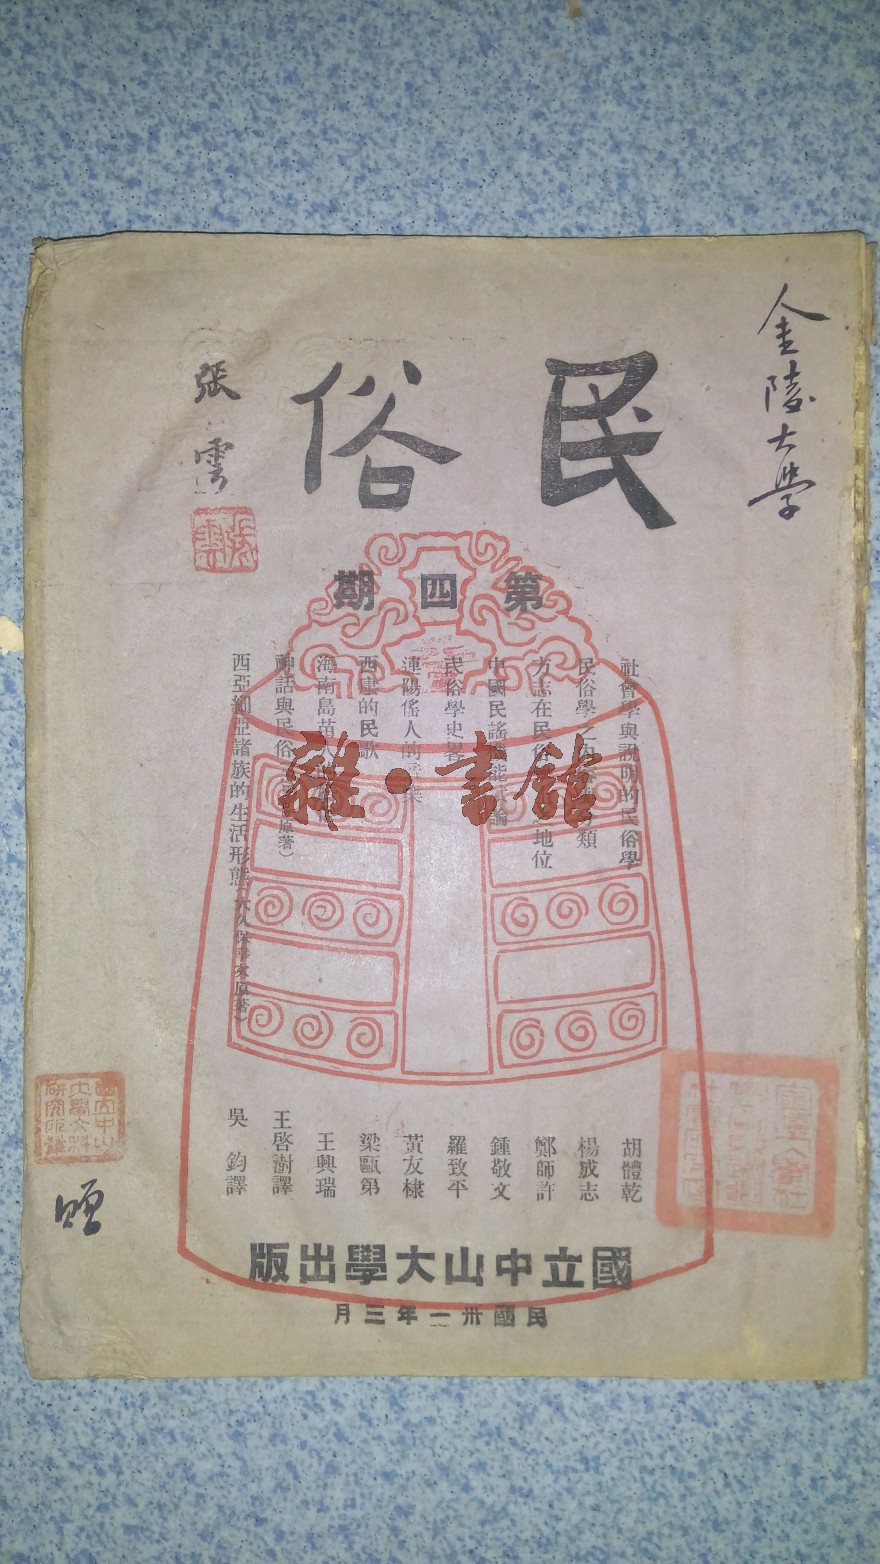 金陵大學
民俗
張雲
第四期
社會學與說明的民俗學
民俗學之內 類
方志在民俗 地位
中國民謠機能試論
民俗學史畧
連陽傜人的
西康的民歌
海南島苗人
神話與民俗 原著）
西亞細亞諸族的生活形態（大久保幸次原著）
胡體乾
楊成志
鄭師許
鍾敬文
羅致平
黃友棣
梁甌第
王興瑞
王啓澍譯
吳鈞譯
雜·書館
國立中山大學文科研究所
贈
國立中山大學出版
民國卅一年三月